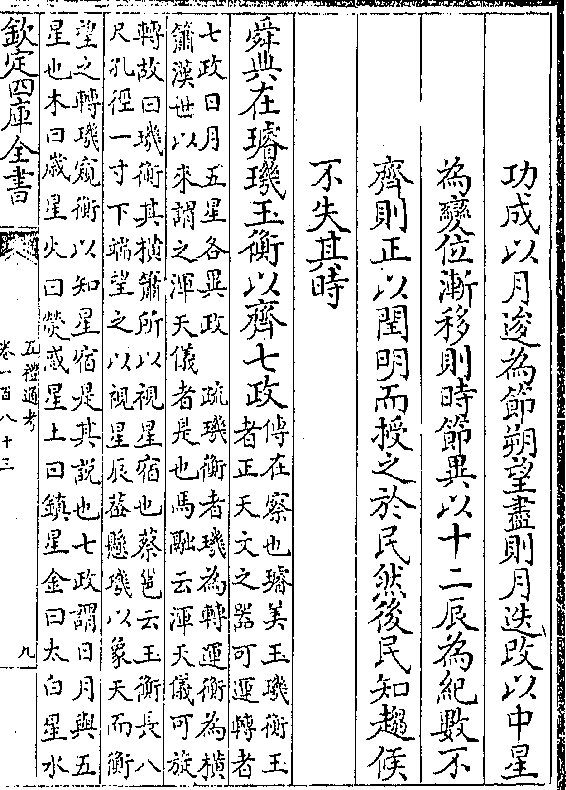 功成以月逡為節朔望盡則月迭改以中星
為變位漸移則時節異以十二辰為紀數不
齊則正以閏明而授之於民然後民知趨候
不失其時
舜典在璿璣玉衡以齊七政
傳在察也璿美玉璣衡玉
者正天文之器可運轉者
七政日月五星各異政 疏璣衡者璣為轉運衡為橫
簫漢世以來謂之渾天儀者是也馬融云渾天儀可旋
轉故曰璣衡其橫簫所以視星宿也蔡邕云玉衡長八
尺孔徑一寸下端望之以視星辰葢懸璣以象天而衡
望之轉璣窺衡以知星宿是其說也七政謂日月與五
星也木曰歲星火曰熒惑星土曰鎮星金曰太白星水
欽定四庫全書
五禮通考
卷一百八十三
九